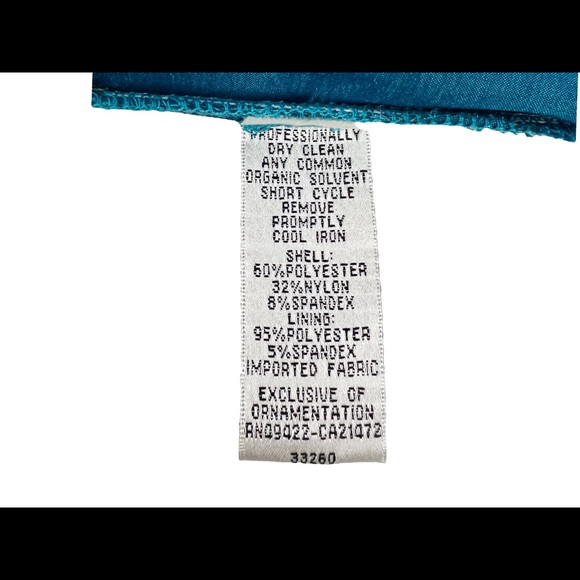 PROFESSIONALLY
DRY CLEAN
ANY COMMON
ORGANIC SOLVENT
SHORT CYCLE
REMOVE
PROMPTLY
COOL IRON
SHELL:
60%POLYESTER
32%NYLON
8%SPANDEX
LINING:
95%POLYESTER
5%SPANDEX
IMPORTED FABRIC
EXCLUSIVE OF
ORNAMENTATION
RN09422-CA21472
33260